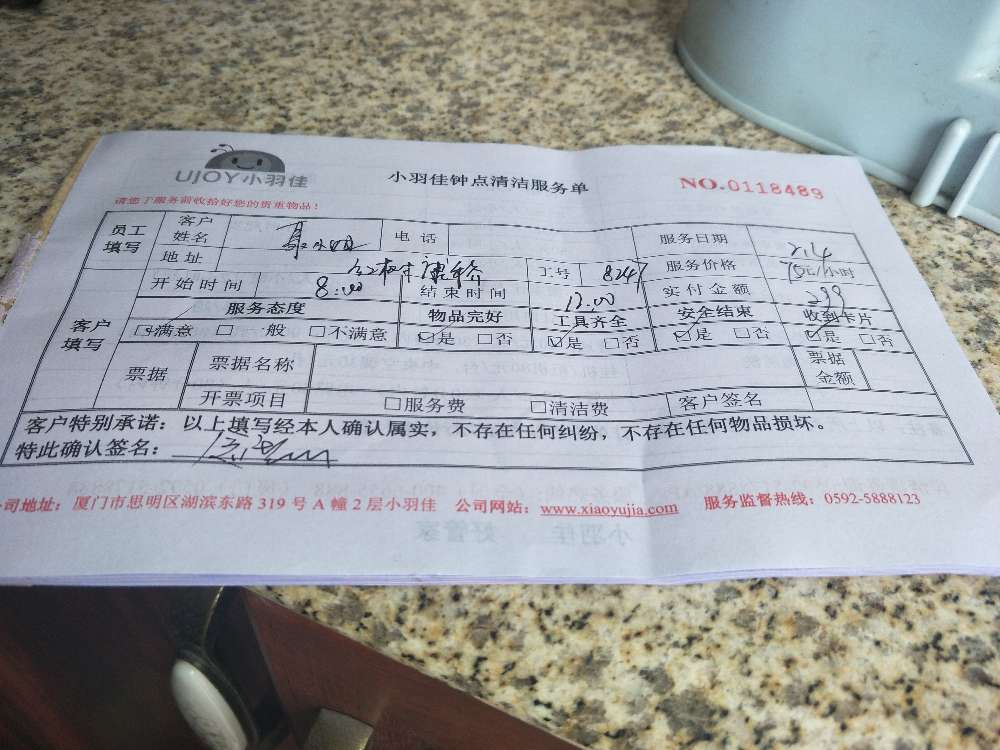 UJOY小羽佳
小羽佳钟点清洁服务单
NO.0118489
请您于服务前收拾好您的贵重物品！
员工填写 客户姓名 电话 服务日期 2.4
地址 工号 8247 服务价格 75元/小时
客户填写 开始时间 8:00 结束时间 12.00 实付金额 299
服务态度 物品完好 工具齐全 安全结束 收到卡片
☑满意 □一般 □不满意 ☑是 □否 ☑是 □否 ☑是 □否 ☑是 □否
票据 票据名称 票据金额
开票项目 □服务费 □清洁费 客户签名
客户特别承诺：以上填写经本人确认属实，不存在任何纠纷，不存在任何物品损坏。
特此确认签名：
公司地址：厦门市思明区湖滨东路 319 号 A 幢 2 层小羽佳 公司网站：www.xiaoyujia.com 服务监督热线：0592-5888123